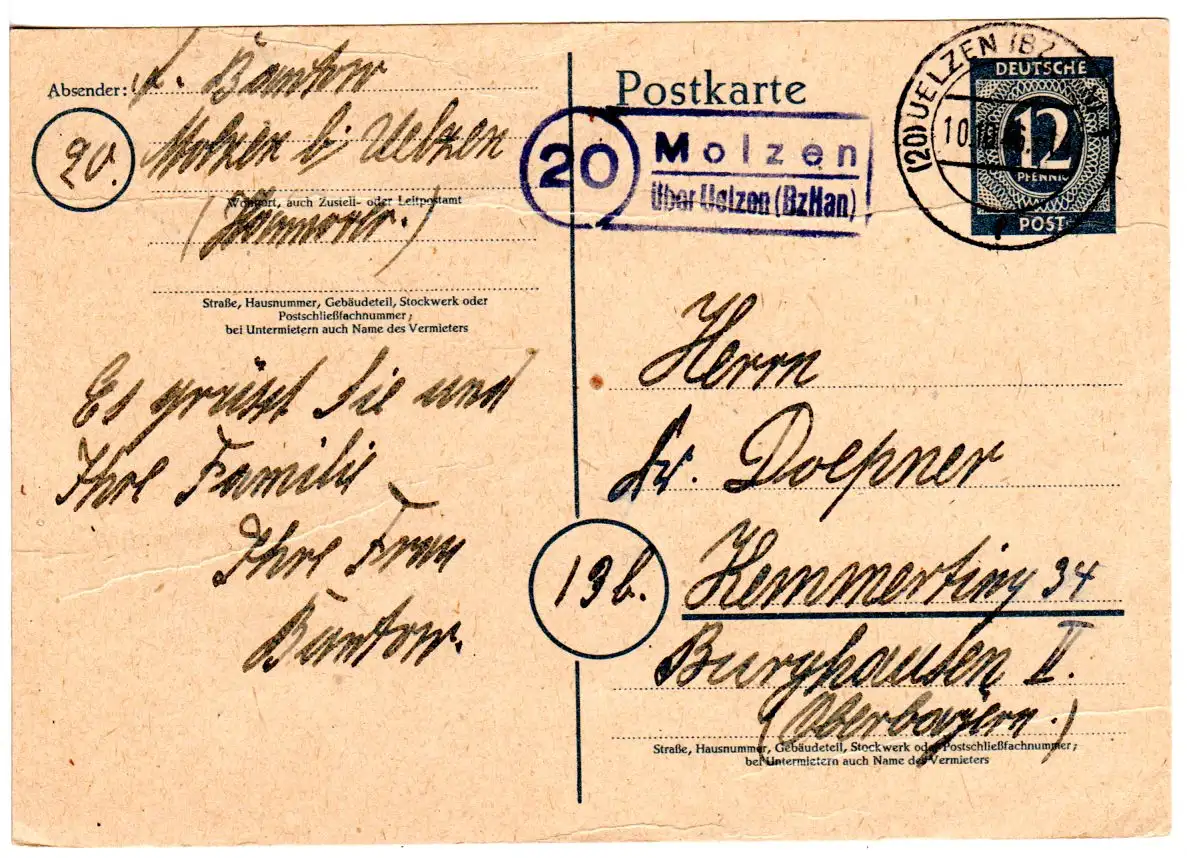 Absender: Bantow
20.
Molzen b. Uelzen
Wohnort, auch Zustell- oder Leitpostamt
(Hannover.)
Straße, Hausnummer, Gebäudeteil, Stockwerk oder
Postschließfachnummer;
bei Untermietern auch Name des Vermieters
Es grüsst Sie und
Ihre Familie
Ihre Frau
Bantow.
Postkarte
20 Molzen
über Uelzen (BzHan)
(20) UELZEN (BZ
10.
DEUTSCHE
12
PFENNIG
POST
Herrn
Dr. Doepner
19b. Hemmerting 34
Burghausen II.
(Oberbayern.)
Straße, Hausnummer, Gebäudeteil, Stockwerk oder Postschließfachnummer;
bei Untermietern auch Name des Vermieters